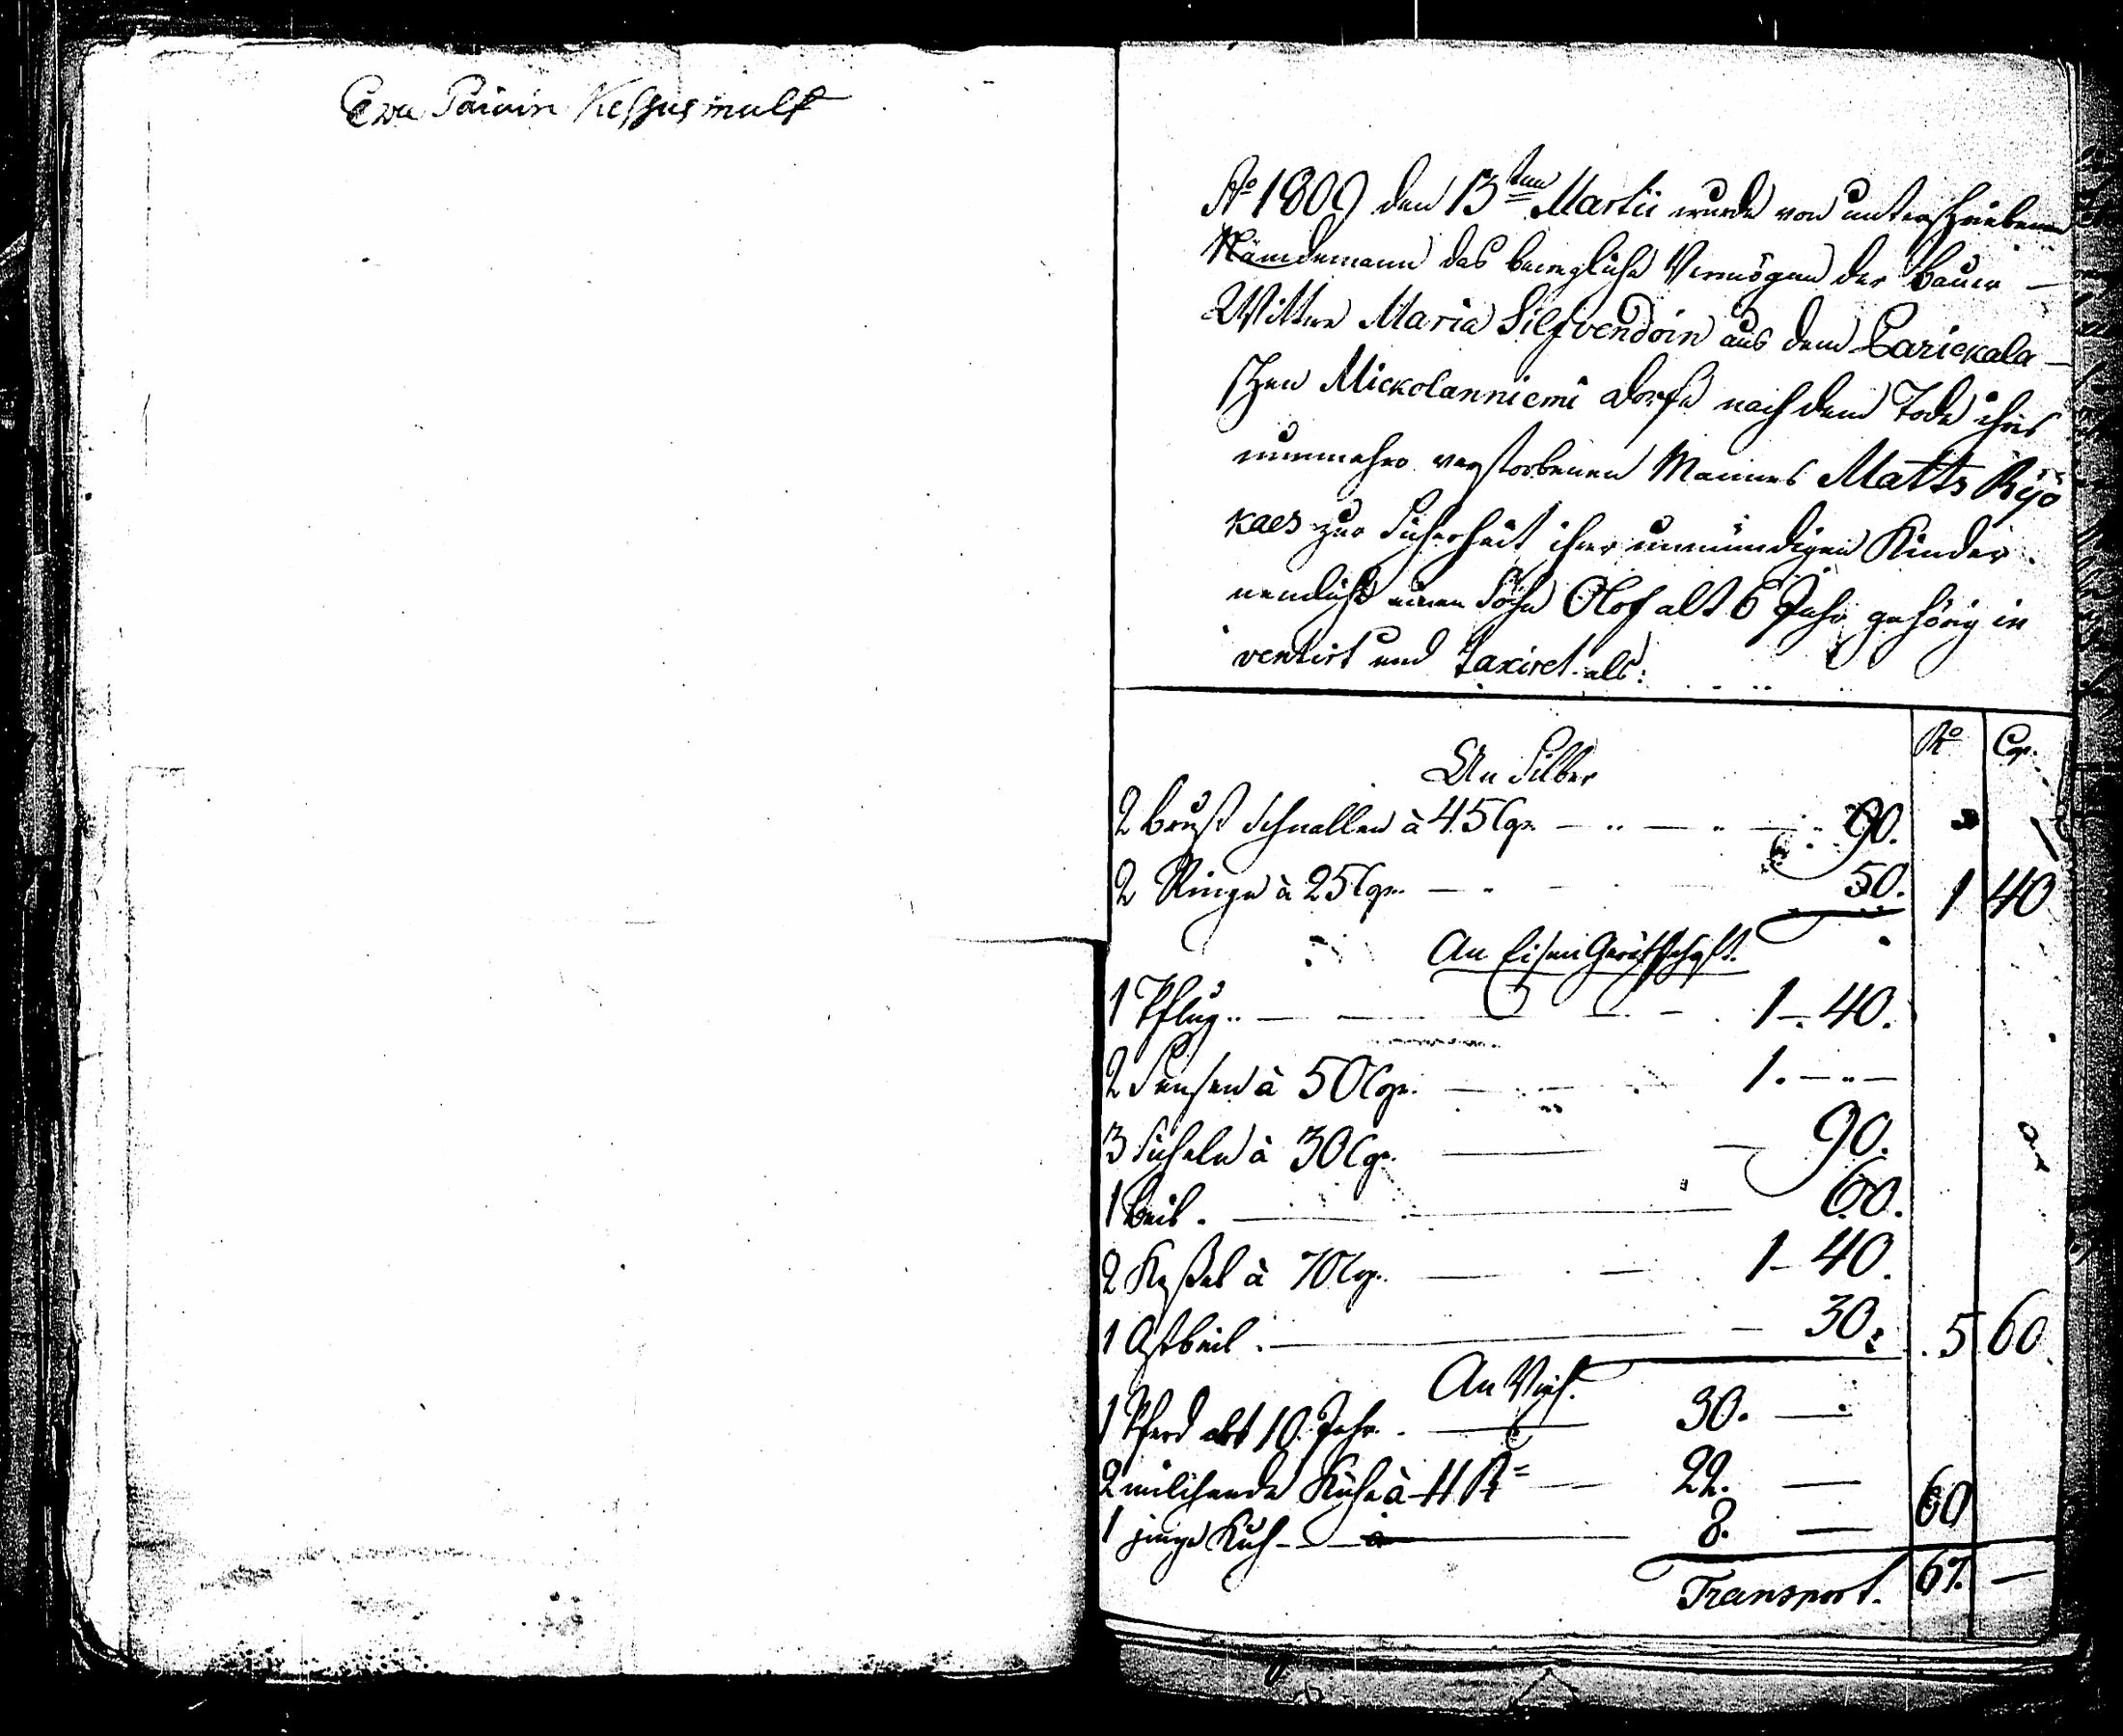 Ewa Paiuin Kessusmulf
Aº 1809 den 13ten Martii wurde von unterschriebenen
Nämdemann das bewegliche Vermögen der Bauer
Wittwe Maria Silfvendoin aus dem Parickala
schen Mickolanniemi Dorfe nach dem Tode ihres
nunmehro verstorbenen Mannes Matts Ryö
kaes zur Sicherheit ihrer unmündigen Kinder
nemlich einen Sohn Olof alt 6 Jahr gehörig in
ventirt und taxiret als:
Rº Cop.
An Silber
2 Brust Schnallen à 45 Cop. 90.
2 Ringe à 25 Cop. 50. 1 40
An Eisen Geräthschaft.
1 Pflug 1 - 40.
2 Sensen à 50 Cop. 1. -
3 Sicheln à 30 Cop. 90.
1 Beil. 60.
2 Keßel à 70 Cop. 1 - 40.
1 Astbeil. 30. 5 60.
An Vieh.
1 Pferd alt 10 Jahr. 30. -
2 milchende Kühe à 11 R 22. -
1 junge Kuh 8. - 60
Transport. 67. -